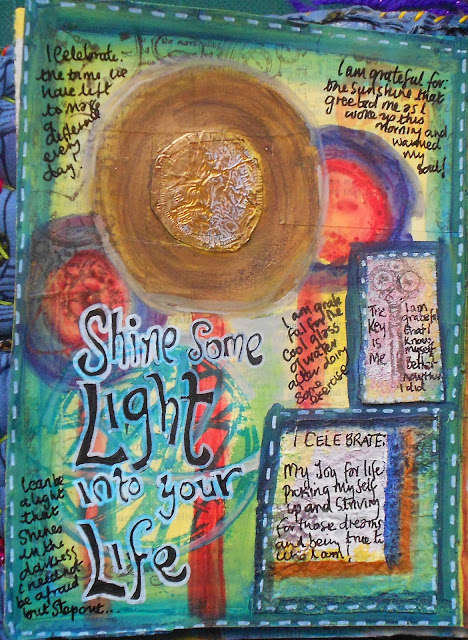 I Celebrate:
the time we
have left
to make
a
difference
every
day!
I am grateful for:
the sunshine that
greeted me as I
woke up this
morning and
warmed
my
soul!
Shine Some
Light
into your
Life
I am grate
ful for the
Cool glass
of water
after doing
some
exercise
The
Key
is
Me
I am
grateful
that I
know
myself
better
now than
I did
I CELEBRATE:
My Joy for life
Picking myself
up and striving
for those dreams
and being true to
who I am!
I can be
a light
that
Shines
in the
darkness
I need not
be afraid
but step out...